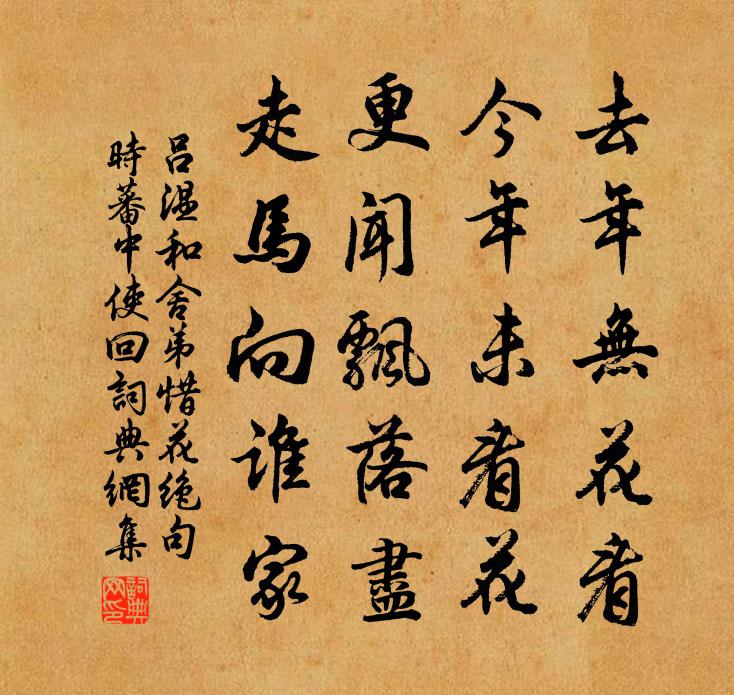 去年無花看
今年未看花
更聞飄落盡
走馬向誰家
吕溫和舍弟惜花絶句
時蕃中使回詞典網集
詞典网印